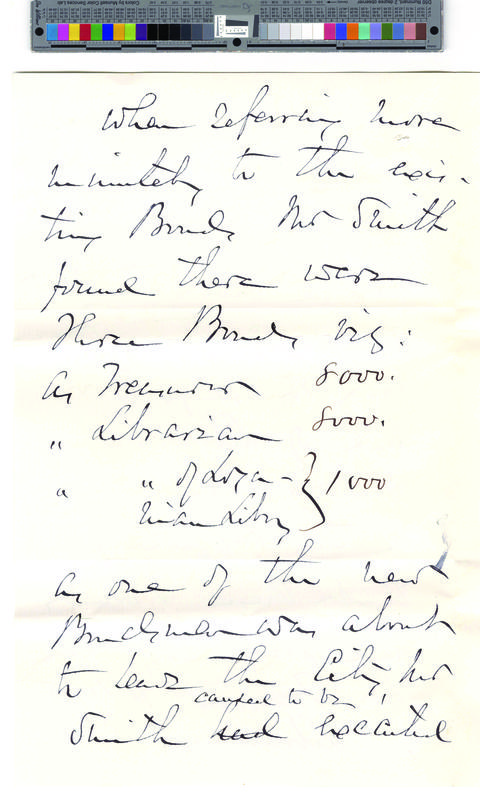 When referring more
minutely to the exis-
ting Bonds, Mr Smith
found there were
three Bonds, viz:
as Treasurer 8000.
" Librarian 8000.
" " of Loga- } 1000
nian Libry
as one of the new
Bondsmen was about
to leave the City, Mr
caused to be
Smith had executed